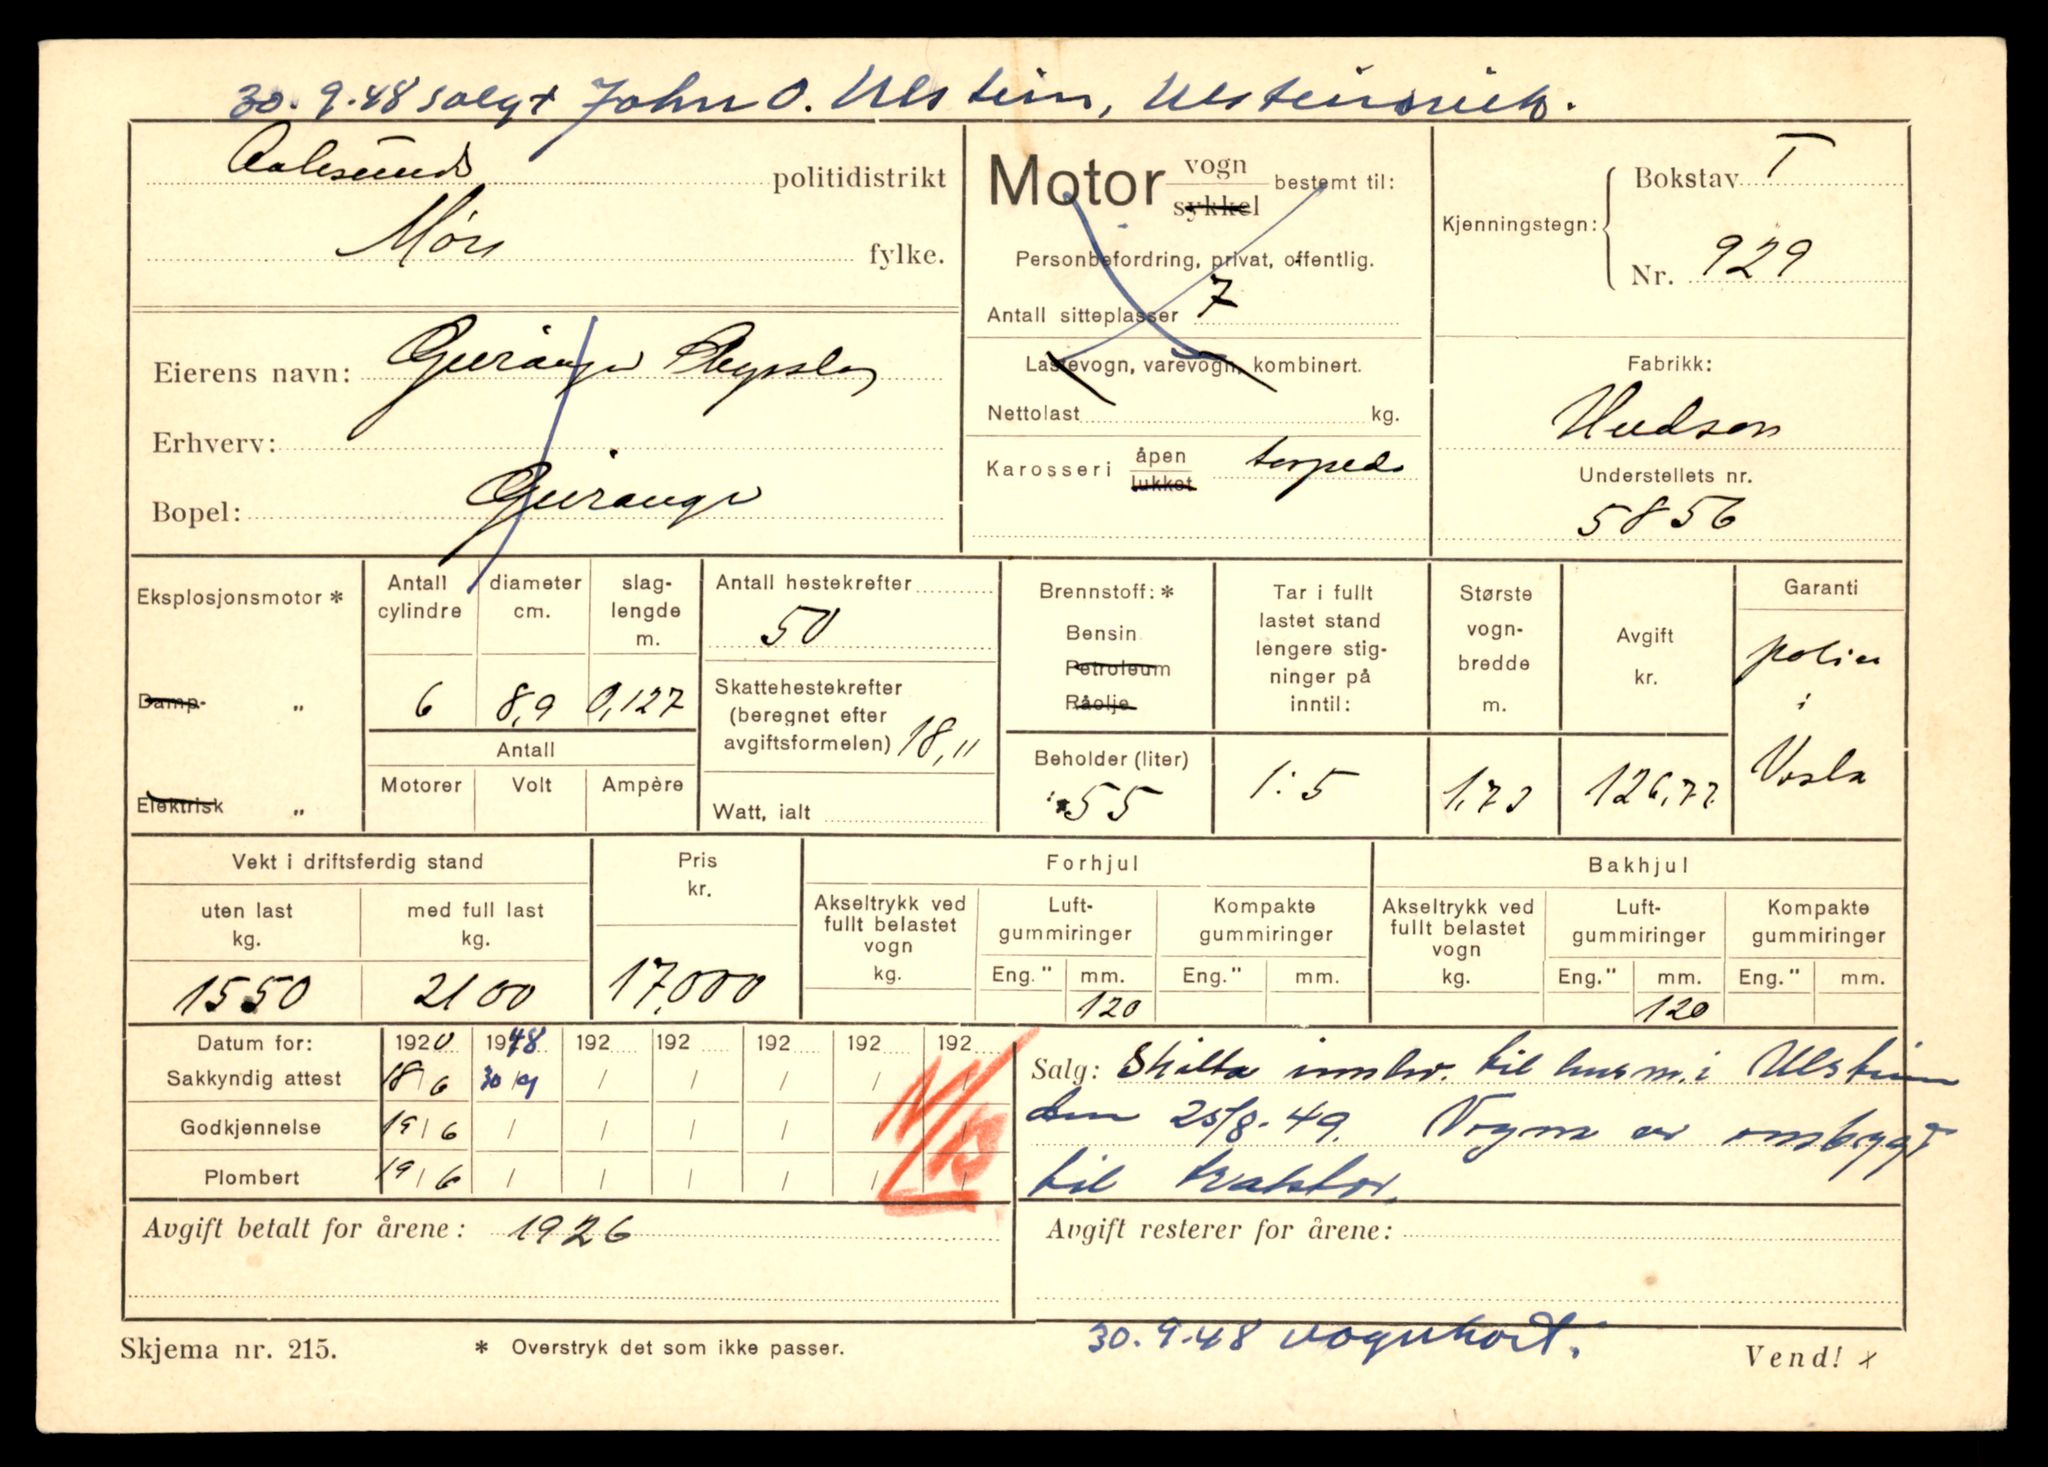 30.9.48 solgt John O. Ulstein, Ulsteinvik.
Aalesunds politidistrikt
Møre fylke.
Motor vogn sykkel bestemt til:
Personbefordring, privat, offentlig.
Antall sitteplasser 7
Lastevogn, varevogn, kombinert.
Nettolast kg.
Karosseri åpen lukket torpedo
Kjenningstegn: Bokstav T
Nr. 929
Eierens navn: Geiranger Skysslag
Erhverv:
Bopel: Geiranger
Fabrikk:
Hudson
Understellets nr.
5856
Eksplosjonsmotor *
Damp- „
Elektrisk „
Antall cylindre
6
diameter cm.
8,9
slag-
lengde
m.
0,127
Antall
Motorer Volt Ampère
Antall hestekrefter
50
Skattehestekrefter
(beregnet efter
avgiftsformelen) 18,11
Watt, ialt
Brennstoff: *
Bensin
Petroleum
Råolje
Beholder (liter)
55
Tar i fullt
lastet stand
lengere stig-
ninger på
inntil:
1:5
Største
vogn-
bredde
m.
1,73
Avgift
kr.
126,77
Garanti
polise
i
Vesta
Vekt i driftsferdig stand
uten last
kg.
1550
med full last
kg.
2100
Pris
kr.
17,000
Forhjul
Akseltrykk ved
fullt belastet
vogn
kg.
Luft-
gummiringer
Eng." mm.
120
Kompakte
gummiringer
Eng." mm.
Bakhjul
Akseltrykk ved
fullt belastet
vogn
kg.
Luft-
gummiringer
Eng." mm.
120
Kompakte
gummiringer
Eng." mm.
Datum for: 1920 1948 192 192 192 192 192
Sakkyndig attest 18/6 30/9 / / / / /
Godkjennelse 19/6 / / / / / /
Plombert 19/6 / / / / / /
Salg: Skilta innlev. til lensm. i Ulstein
den 25/8-49. Vogna er ombygt
til traktor.
Avgift betalt for årene: 1926
Avgift resterer for årene:
30.9.48 vognkort.
Skjema nr. 215.
* Overstryk det som ikke passer.
Vend! x